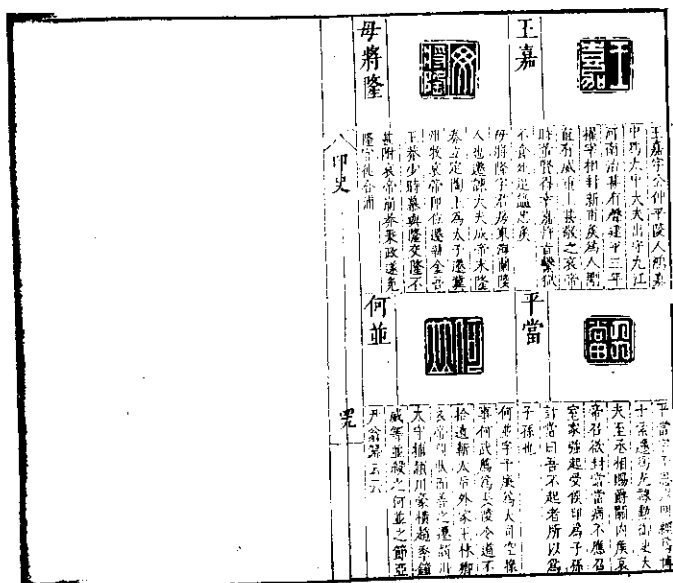 王嘉
王嘉字公仲平陵人鴻嘉
中為太中大夫出守九江
河南治甚有聲建平三年
擢宰相封新甫矦為人剛
直有威重上甚敬之哀帝
時帝賢得幸嘉首繫獄
不食死追謚忠矣
毋將隆
毋將隆字君房東海蘭陵
人也遷諫大夫成帝末隆
奏立定陶上為太子遷冀
州牧哀帝即位遷執金吾
王莽少時慕與隆交隆不
甚附哀帝崩莽秉政遂免
隆官徙合浦
平當
平當字子思以明經為博
士累遷為光祿勳御史大
夫至丞相賜爵關內矦哀
帝召欲封當當病不應召
室家強起受侯印為子孫
計當曰吾不起者所以為
子孫也
何並
何並字子廉為大司空掾
事何武薦為長陵令道不
拾遺斬太帝外家王林卿
哀帝聞狀而善之遷潁川
太守捕潁川豪橫趙季鍾
威等並殺之何並之節亞
尹翁歸云云
印史
四九